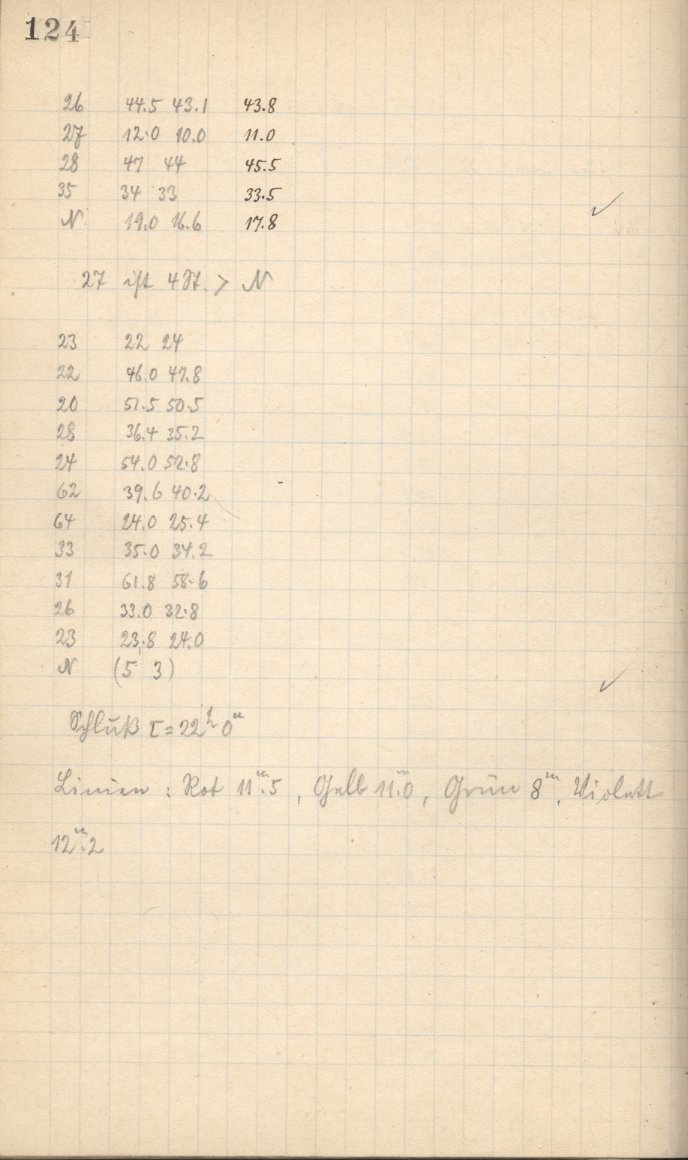 124
26 44.5 43.1 43.8
27 12.0 10.0 11.0
28 47 44 45.5
35 34 33 33.5
N 19.0 16.6 17.8
27 ist 4 St. > N
23 22 24
22 46.0 47.8
20 51.5 50.5
28 36.4 35.2
24 54.0 52.8
62 39.6 40.2
64 24.0 25.4
33 35.0 34.2
31 61.8 58.6
26 33.0 32.8
23 23.8 24.0
N (5 3)
Schluß τ=22ʰ0ᵐ
Linien : Rot 11ᵐ.5, Gelb 11ᵐ.0, Grün 8ᵐ, Violett
12ᵐ.2